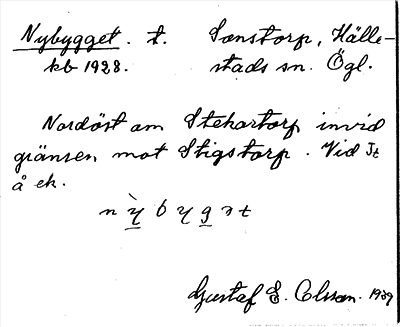 Nybygget. t. Sonstorp, Hälle-
kb 1928. stads sn. Ögl.
Nordöst om Stekartorp invid
gränsen mot Stigstorp. Vid Jt
å ek.
n ỳ̖ b y g̲ ɜ t
Gustaf E. Olsson. 1939